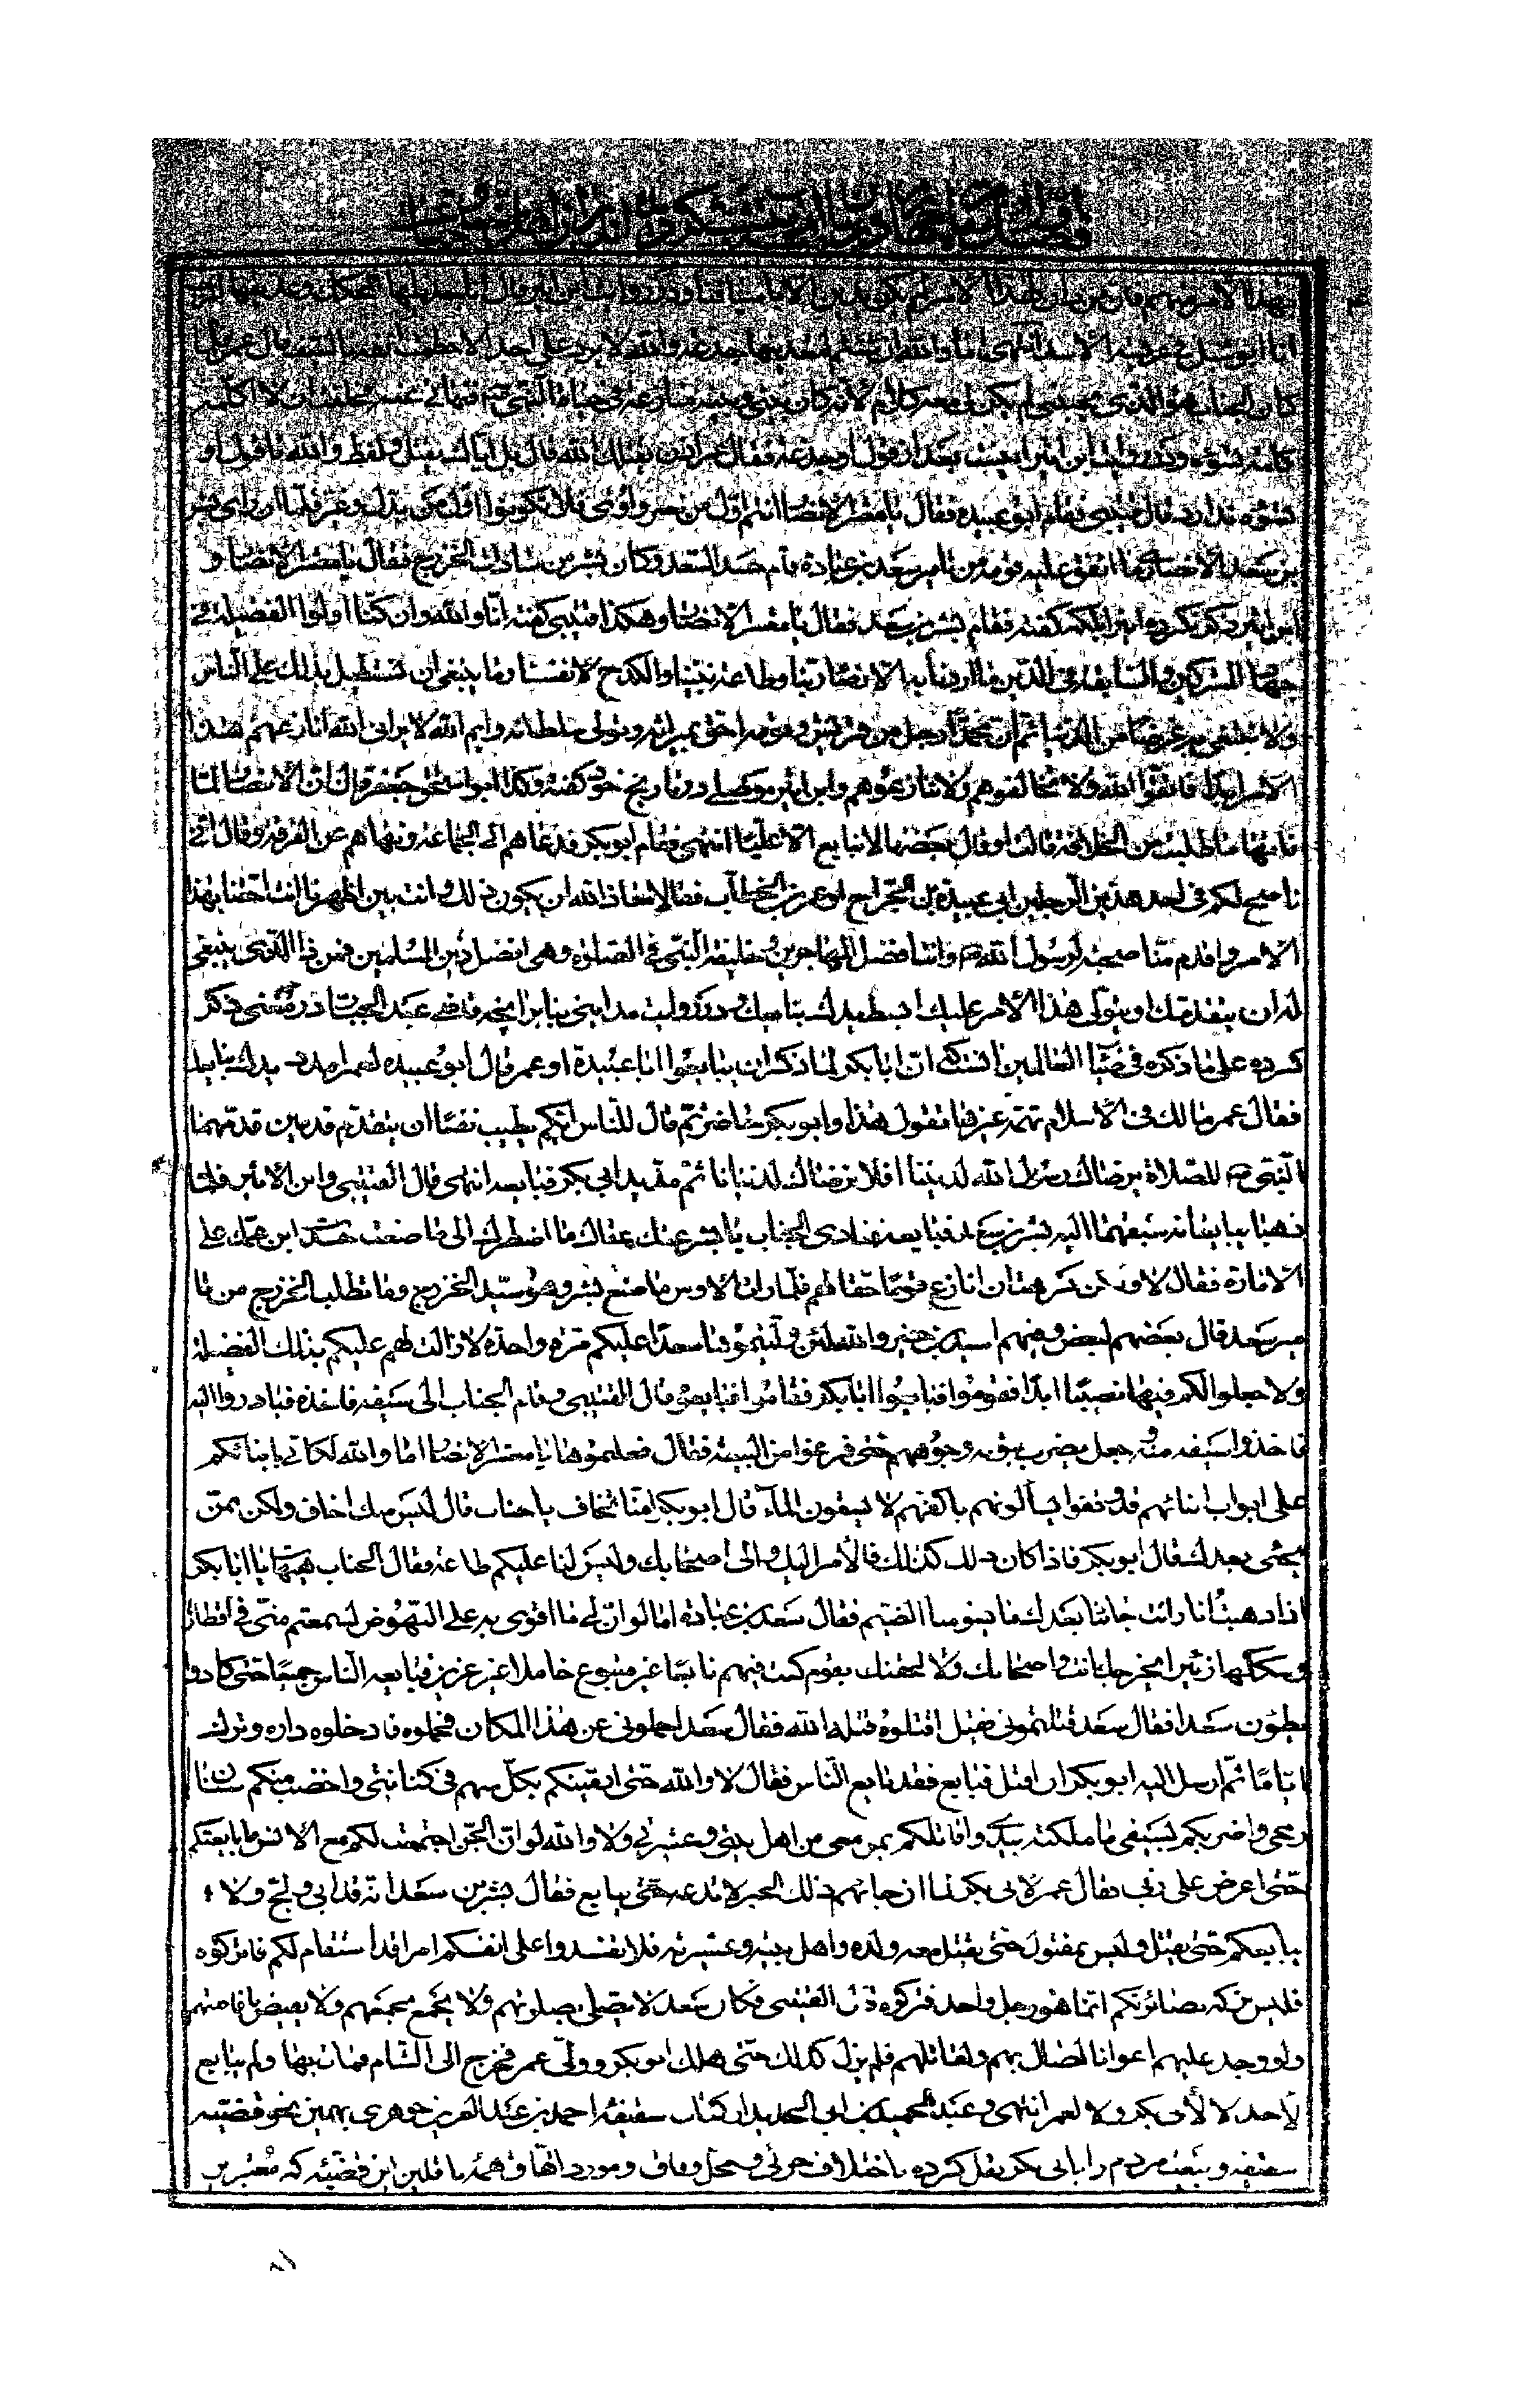 بهذا الامر منهم فان من دان لهذا الامر لم يكن يدين الا باسيافنا
انا ابو شبل في عرينة الاسد انتهى اما والله لا يرد على احد الا حطمت انفه بالسيف قال عمر فلما
كان الحباب هو الذي يجيبني لم يكن لي معه كلام لانه كان بيني وبينه منازعة في حياة النبي فنهاني عنه فحلفت ان لا اكلمه
فقال عمر اذن يقتلك الله قال بل اياك يقتل
فقام ابو عبيده فقال يا معشر الانصار انتم اول من نصر واوى فلا تكونوا اول من بدل وغير فلما راى بشر
بن سعد الانصارى ما اتفق عليه قومه من تامير سعد بن عباده قام حسدا لسعد وكان بشر من سادات الخزرج فقال يا معشر الانصار و
ابن اثير ذكر نكرده است بلكه كفته فقام بشر بن سعد فقال يا معشر الانصار وهكذا قتيبى كفته انا والله وان كنا اولوا الفضيلة فى
جهاد المشركين والسابقة فى الدين ما اردنا به الا رضا ربنا وطاعة نبينا والكدح لانفسنا وما ينبغى ان نستطيل بذلك على الناس
ولا نبتغى به عرضا من الدنيا ثم ان محمدا رجل من قريش وقومه احق بميراثه وتولى سلطانه وايم الله لا يرانى الله انازعهم هذا
الامر ابدا فاتقوا الله ولا تخالفوهم ولا تنازعوهم وابن اثير موصلى در تاريخ خود كفته وكذا ابو اسحق جعفر قال ان الانصار لما
فاتها ما طلبت من الخلافة قالت او قال بعضها لا نبايع الا عليا انتهى فقام ابو بكر فدعاهم الى الجماعة ونهاهم عن الفرقة وقال انى
ناصح لكم فى احد هذين الرجلين ابى عبيدة بن الجراح او عمر بن الخطاب فقالا معاذ الله ان يكون ذلك وانت بين اظهرنا انت احقنا بهذا
الامر واقدم منا صحبة لرسول الله وانت افضل المهاجرين وخليفة النبى فى الصلوة وهى افضل دين المسلمين فمن ذا الذى ينبغى
له ان يتقدمك او يتولى هذا الامر عليك ابسط يدك نبايعك ودر روايت مداينى بنابر انچه قاضى عبد الجبار در مغنى ذكر
كرده على ما ذكره فى ضياء العالمين انستكه ان ابا بكر لما ذكر ان يبايعوا ابا عبيدة او عمر قال ابو عبيده لعمر امدد يدك نبايعك
فقال عمر مالك فى الاسلام تهمة غيرها تقول هذا وابو بكر حاضر ثم قال للناس ايكم يطيب نفسا ان يتقدم قدمين قدمهما
النبى للصلاة رضاك رسول الله لديننا افلا نرضاك لدنيانا ثم مد يد ابى بكر فبايعه انتهى قال القتيبى وابن الاثير فلما
ذهبا يبايعانه سبقهما اليه بشر بن سعد فبايعه فنادى الحباب يا بشر عقك عقاق ما اضطرك الى ما صنعت حسدت ابن عمك على
الامارة فقال لا والله لكن كرهت ان انازع قوما حقا لهم فلما رات الاوس ما صنع بشر وهو سيد الخزرج وما تطلب الخزرج من تا
مير سعد قال بعضهم لبعض وفيهم اسيد بن حضير والله لئن وليتموها سعدا عليكم مرة واحدة لا زالت لهم عليكم بذلك الفضيلة
ولا جعلوا لكم فيها نصيبا ابدا فقوموا فبايعوا ابا بكر فقاموا فبايعوه قال القتيبى وقام الحباب الى سيفه فاخذه فبادروا اليه
فاخذوا سيفه منه وجعل يضرب بثوبه وجوههم حتى فرغوا من البيعة فقال فعلتموها يا معشر الانصار اما والله لكانى بابنائكم
على ابواب ابنائهم قد وقفوا يسألونهم باكفهم لا يسقون الماء قال ابو بكر امنا تخاف يا حباب قال ليس منك اخاف ولكن ممن
يجئى بعدك فقال ابو بكر فاذا كان ذلك كذلك فالامر اليك والى اصحابك وليس لنا عليكم طاعة وقال الحباب هيهات يا ابا بكر
اذا ذهبت انا وانت جائنا بعدك من يسومنا الضيم فقال سعد بن عبادة اما لو ان لى ما اقوى به على النهوض لسمعتم منى فى اقطارها
وسككها زئيرا يخرجك انت واصحابك ولالحقنك بقوم كنت فيهم تابعا غير متبوع خاملا غير عزيز فبايعه الناس جميعا حتى كادوا
يطؤن سعدا فقال سعد قتلتمونى فقيل اقتلوه قتله الله فقال سعد احملونى عن هذا المكان فحملوه فادخلوه داره وترك
اياما ثم ارسل اليه ابو بكر ان اقبل فبايع فقد بايع الناس فقال لا والله حتى ارميكم بكل سهم فى كنانتى واخضب منكم سنان
رمحى واضربكم بسيفى ما ملكته يدى واقاتلكم بمن معى من اهل بيتى وعشيرتى ولا والله لو ان الجن اجتمعت لكم مع الانس ما بايعتكم
حتى اعرض على ربى فقال عمر لابى بكر لما ان جائهم ذلك الخبر لا تدعه حتى يبايع فقال بشر بن سعد انه قد ابى ولج ولا
يبايعكم حتى يقتل وليس بمقتول حتى يقتل معه ولده واهل بيته وعشيرته فلا تفسدوا على انفسكم امرا قد استقام لكم فاتركوه
فليس تركه بضائركم انما هو رجل واحد فتركوه قال القتيبى فكان سعد لا يصلى بصلوتهم ولا يجمع بجمعهم ولا يفيض بافاضتهم
ولو وجد عليهم اعوانا لصال بهم ولقاتلهم فلم يزل كذلك حتى هلك ابو بكر وولى عمر فخرج الى الشام فمات بها ولم يبايع
لاحد لا لابى بكر ولا لعمر انتهى وعبد الحميد بن ابى الحديد از كتاب سقيفه احمد بن عبد العزيز جوهرى بهمين نحو قضيه
سقيفه و بيعت مردم را با ابى بكر نقل كرده با اختلاف جزئى ومحل وفاق ومورد اتفاق همه ناقلين اين قضيه كه معتبرين